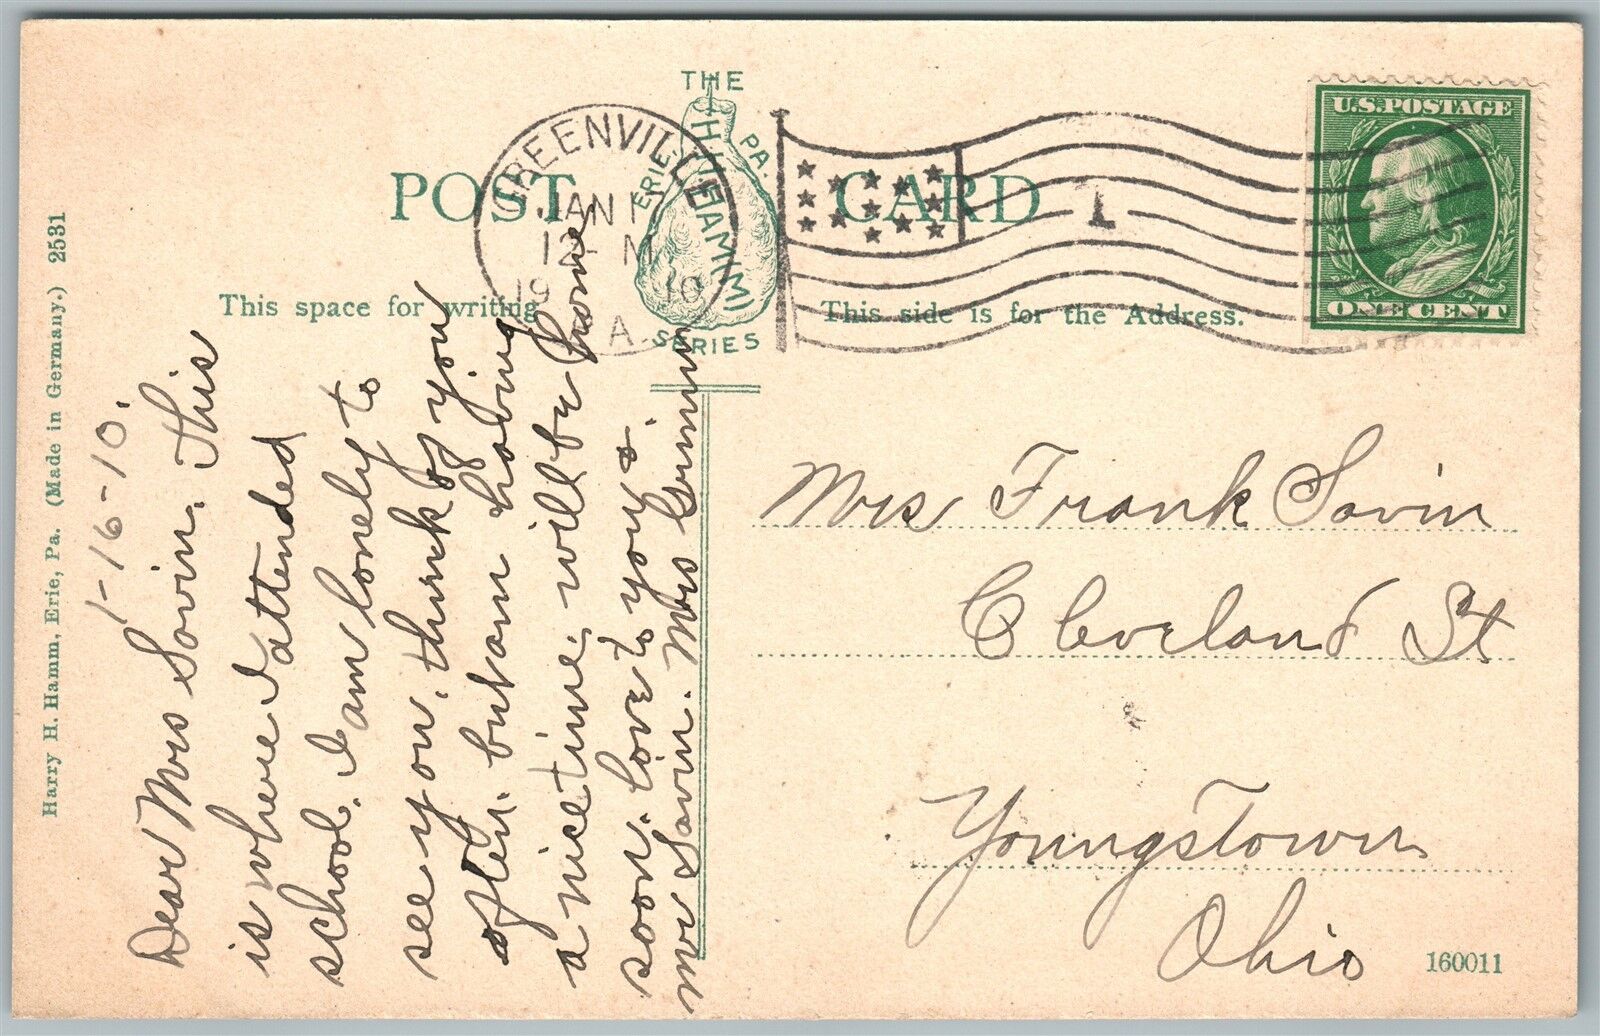 Harry H. Hamm, Erie, Pa. (Made in Germany.) 2531
THE
HAMM
ERIE, PA.
SERIES
POST CARD
GREENVILLE
JAN 1
12 M
19 10
A.
1
U.S. POSTAGE
ONE CENT
This space for writing
This side is for the Address.
1-16-10.
Dear Mrs Savin. This
is where I attended
school. I am lonely to
see you, think of you
often. but am having
a nice time, will be home
soon. love to you &
Mr Savin. Mrs
Mrs Frank Savin
Cleveland St
Youngstown
Ohio
160011